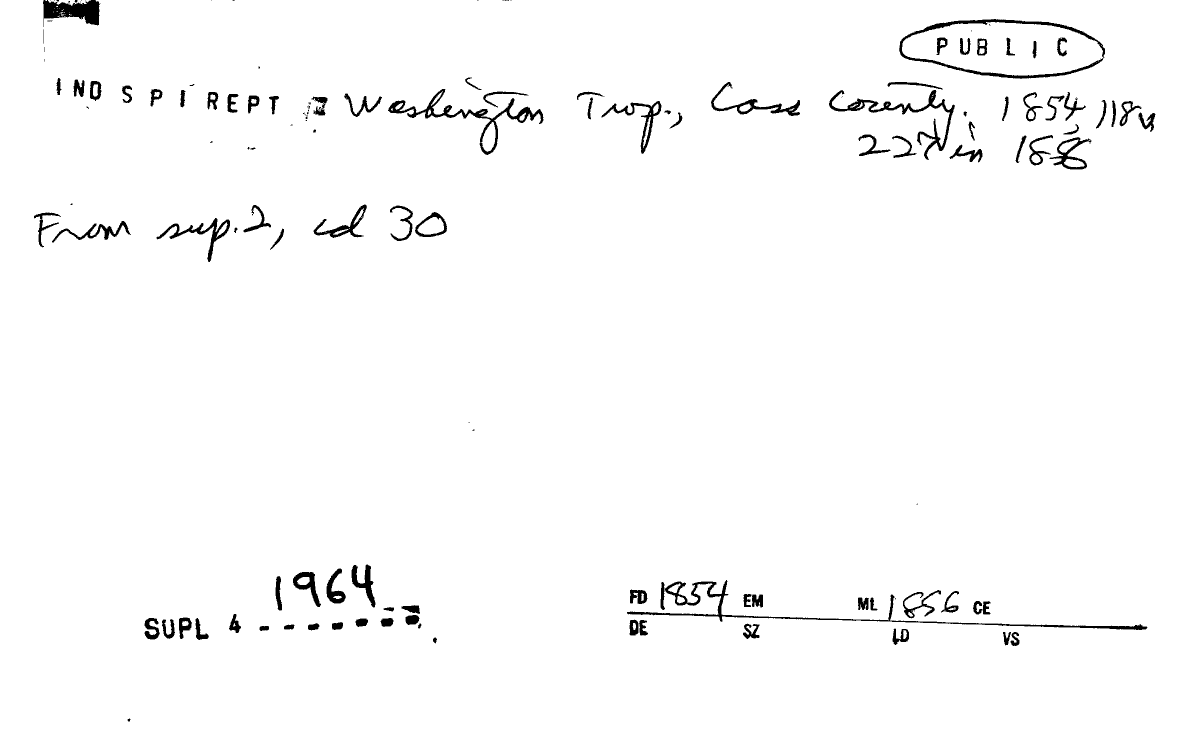 PUBLIC
IND SPI REPT Washington Twp., Cass County. 1854, 118v
227 in 1856
From sup.2, cd 30
1964
SUPL 4 - - - - - - -
FD 1854 EM ML 1856 CE
DE SZ LD VS